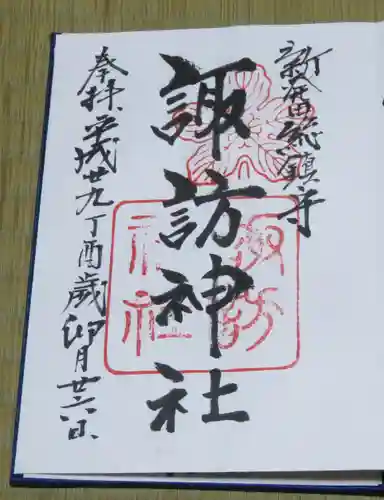 新発田総鎮守
諏訪神社
諏訪
神社
奉拝 平成廿九丁酉歳 卯月廿六日